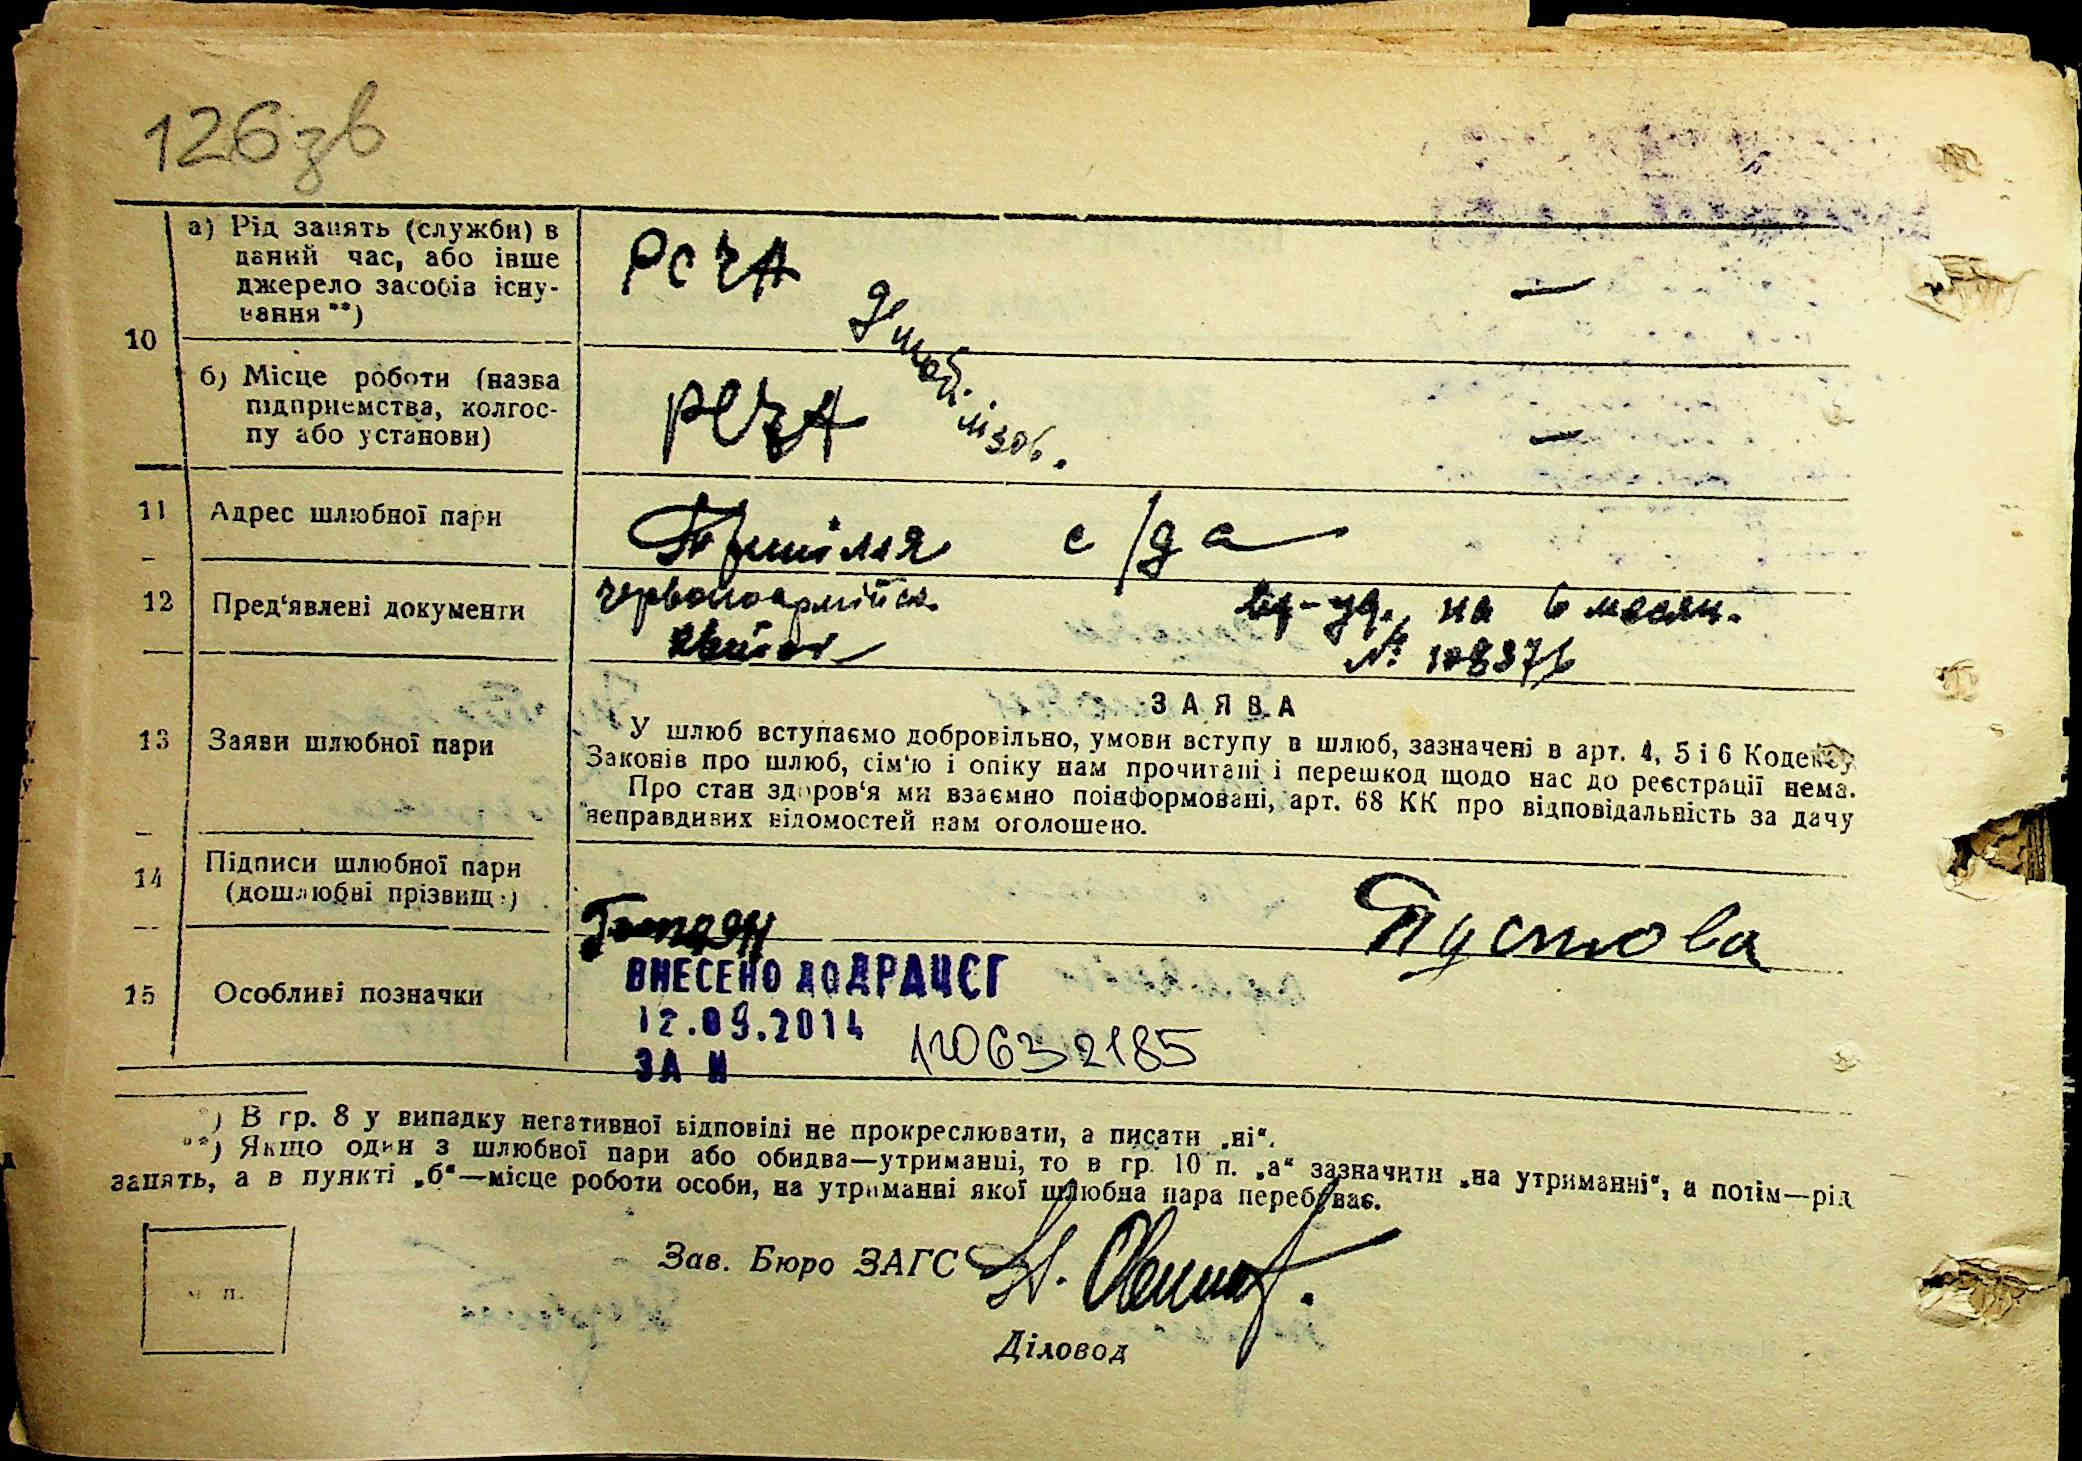 126 зв
10
а) Рід занять (служби) в
даний час, або інше
джерело засобів існу-
вання **)
РСЧА
—
демобілізов.
б) Місце роботи (назва
підприємства, колгос-
пу або установи)
РСЧА
—
11 Адрес шлюбної пари
с/да
12 Пред'явлені документи
червоноармійск.
на 6 месяц.
№ 108376
13 Заяви шлюбної пари
ЗАЯВА
У шлюб вступаємо добровільно, умови вступу в шлюб, зазначені в арт. 4, 5 і 6 Кодексу
Законів про шлюб, сім'ю і опіку нам прочитані і перешкод щодо нас до реєстрації нема.
Про стан здоров'я ми взаємно поінформовані, арт. 68 КК про відповідальність за дачу
неправдивих відомостей нам оголошено.
14 Підписи шлюбної пари
(дошлюбні прізвища)
Пустова
15 Особливі позначки
ВНЕСЕНО ДО ДРАЦСГ
12.09.2014
ЗА N 120632185
*) В гр. 8 у випадку негативної відповіді не прокреслювати, а писати „ні“.
**) Якщо один з шлюбної пари або обидва—утриманці, то в гр. 10 п. „а“ зазначити „на утриманні“, а потім—рід
занять, а в пункті „б“—місце роботи особи, на утриманні якої шлюбна пара перебуває.
м п.
Зав. Бюро ЗАГС
Діловод